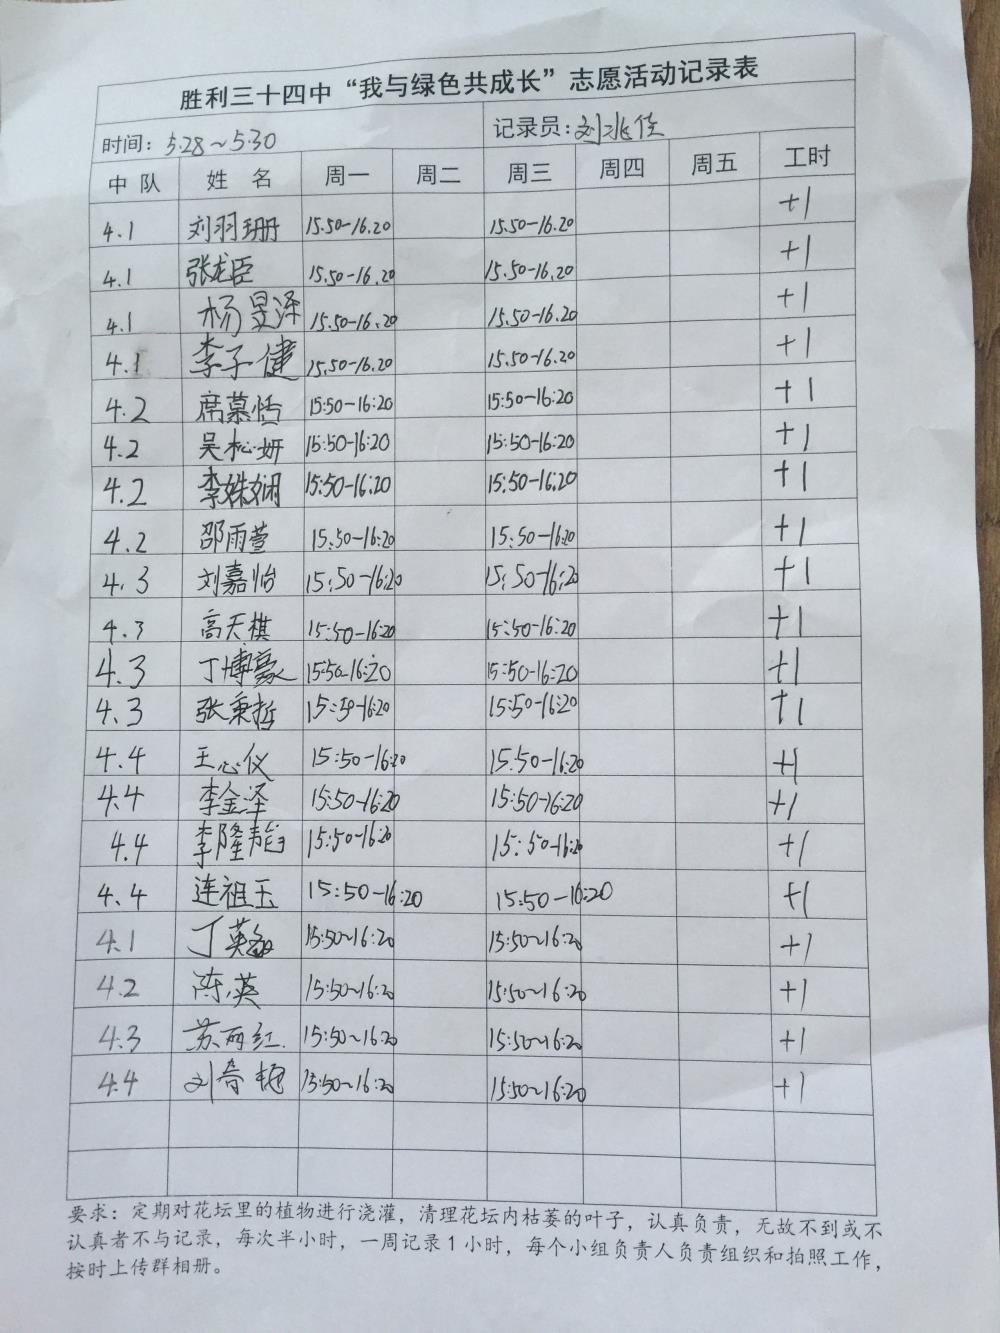 胜利三十四中“我与绿色共成长”志愿活动记录表
时间：5.28～5.30 记录员：刘兆佳
中队 姓名 周一 周二 周三 周四 周五 工时
4.1 刘羽珊 15.50-16.20 15.50-16.20 +1
4.1 张龙臣 15.50-16.20 15.50-16.20 +1
4.1 杨昱泽 15.50-16.20 15.50-16.20 +1
4.1 李子健 15.50-16.20 15.50-16.20 +1
4.2 席慕恬 15:50-16:20 15:50-16:20 +1
4.2 吴松妍 15:50-16:20 15:50-16:20 +1
4.2 李姝娴 15:50-16:20 15:50-16:20 +1
4.2 邵雨萱 15:50-16:20 15:50-16:20 +1
4.3 刘嘉怡 15:50-16:20 15:50-16:20 +1
4.3 高天棋 15:50-16:20 15:50-16:20 +1
4.3 丁博豪 15:50-16:20 15:50-16:20 +1
4.3 张秉哲 15:50-16:20 15:50-16:20 +1
4.4 王心仪 15:50-16:20 15:50-16:20 +1
4.4 李金泽 15:50-16:20 15:50-16:20 +1
4.4 李隆 15:50-16:20 15:50-16:20 +1
4.4 连祖玉 15:50-16:20 15:50-16:20 +1
4.1 丁英 15:50~16:20 15:50~16:20 +1
4.2 陈英 15:50~16:20 15:50~16:20 +1
4.3 苏丽红 15:50~16:20 15:50~16:20 +1
4.4 刘 艳 15:50~16:20 15:50~16:20 +1
要求：定期对花坛里的植物进行浇灌，清理花坛内枯萎的叶子，认真负责，无故不到或不
认真者不与记录，每次半小时，一周记录1小时，每个小组负责人负责组织和拍照工作，
按时上传群相册。